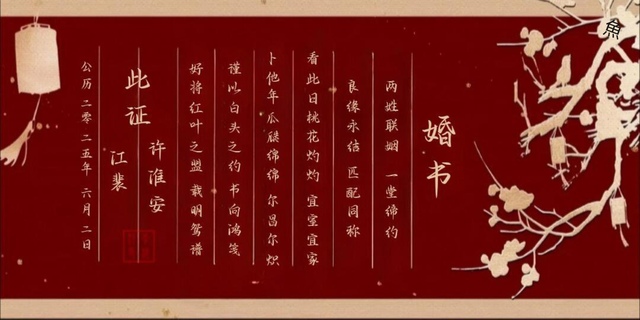 婚书
两姓联姻 一堂缔约
良缘永结 匹配同称
看此日桃花灼灼 宜室宜家
卜他年瓜瓞绵绵 尔昌尔炽
谨以白头之约 书向鸿笺
好将红叶之盟 载明鸳谱
此证
许淮安
江裴
公历 二零二五年 六月二日
魚